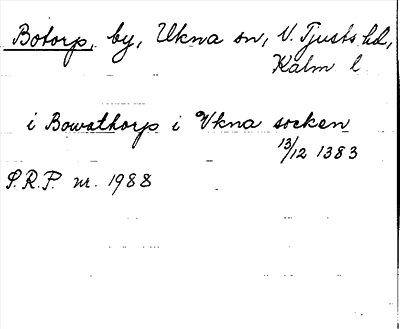 Botorp, by, Ukna sn, N. Tjusts hd,
Kalm l
i Bowathorp i Vkna socken
13/12 1383
S.R.P. nr. 1988